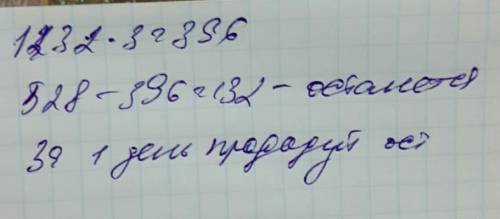 132·3=396
528-396=132 - останется
За 1 день продадут ост